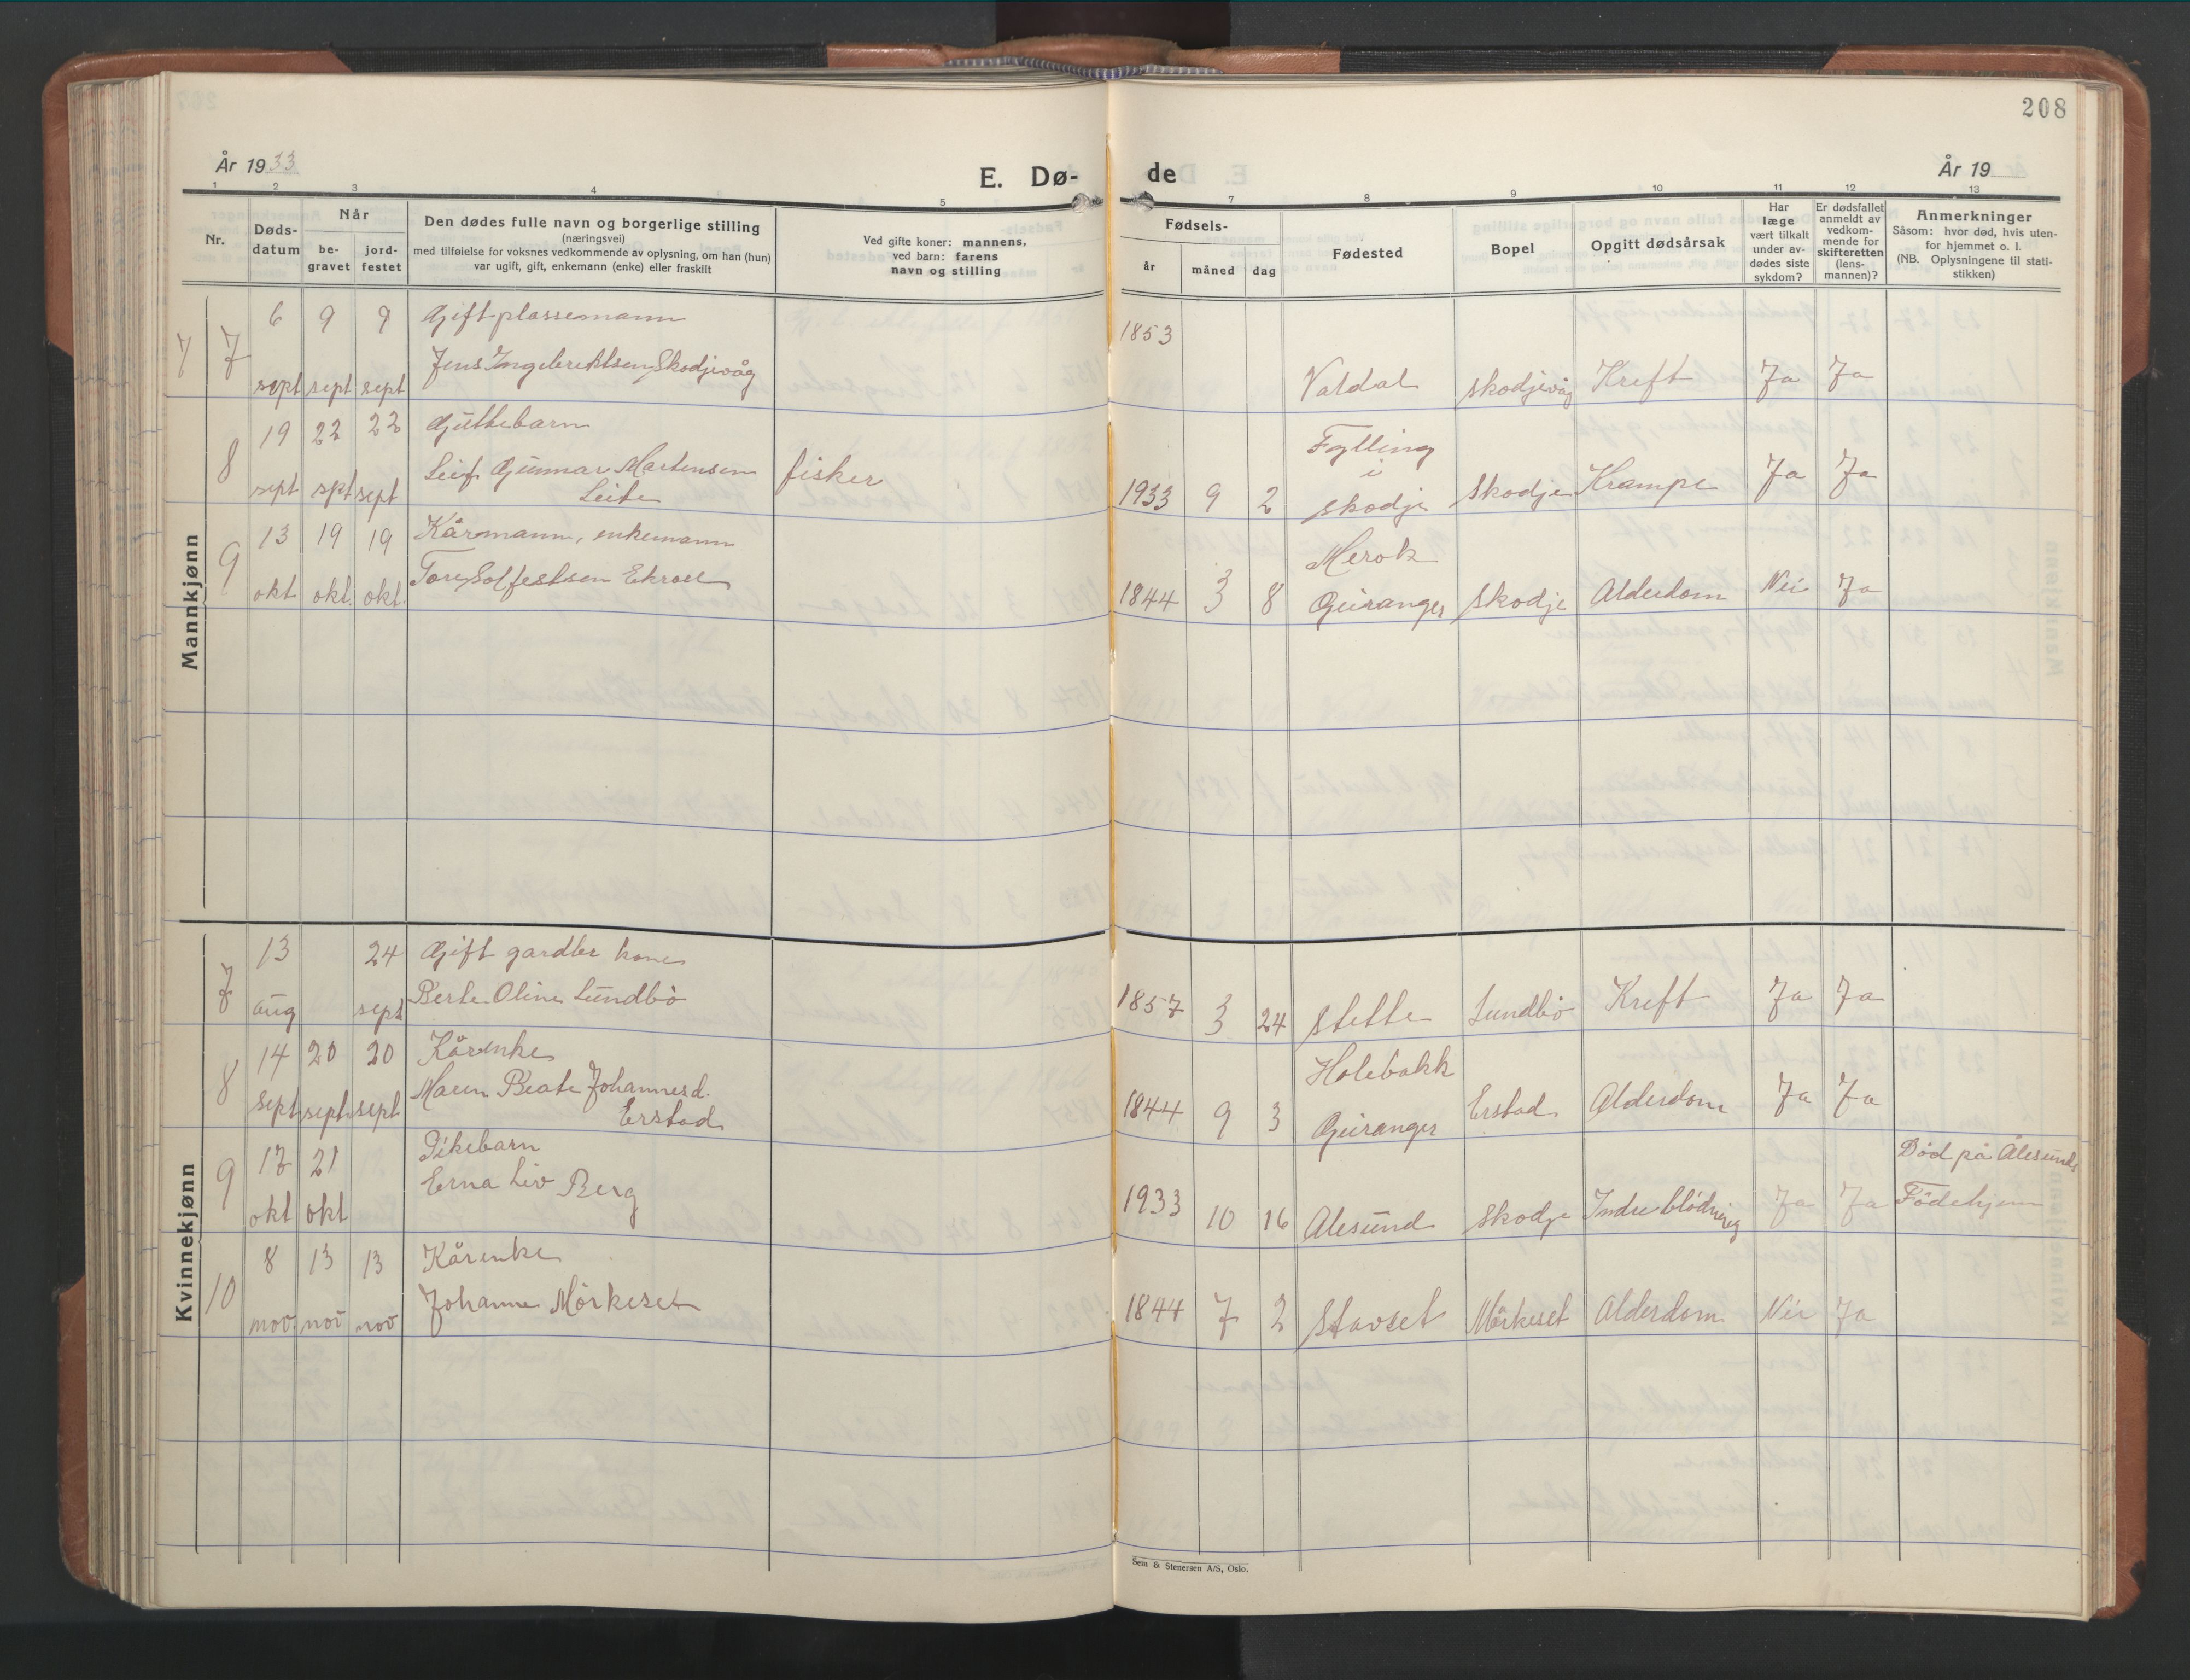 208
År 1933
E. Dø-
de
År 19
1 2 3 4 5 7 8 9 10 11 12 13
Nr.
Døds-
datum
Når
be-
gravet
jord-
festet
Den dødes fulle navn og borgerlige stilling
(næringsvei)
med tilføielse for voksnes vedkommende av oplysning, om han (hun)
var ugift, gift, enkemann (enke) eller fraskilt
Ved gifte koner: mannens,
ved barn: farens
navn og stilling
Fødsels-
år måned dag
Fødested
Bopel
Opgitt dødsårsak
Har
læge
vært tilkalt
under av-
dødes siste
sykdom?
Er dødsfallet
anmeldt av
vedkom-
mende for
skifteretten
(lens-
mannen)?
Anmerkninger
Såsom: hvor død, hvis uten-
for hjemmet o. l.
(NB. Oplysningene til stati-
stikken)
Mannkjønn
7 7 6 sept 9 sept 9 sept
Gift plassemann
Jens Ingebrektsen Skodjevåg
1853 Valdal Skodjevåg Kreft Ja Ja
8 19 sept 22 spt 22 sept
Guttebarn
Leif Gunnar Martensen
Leite
fisker
1933 9 2
Fylling
i
Skodje
Skodje Krampe Ja Ja
9 13 okt 19 okt. 19 okt.
Kårmann, enkemann
Tore Solfestsen Ekroll
1844 3 8
Merok
Geiranger
Skodje Alderdom Nei Ja
Kvinnekjønn
7 13 aug 24 sept
Gift gardbr kone
Berte Oline Lundbö
1857 3 24 Stette Lundbö Kreft Ja Ja
8 14 sept 20 sept 20 sept
Kårenke
Maren Beate Johannesd.
Erstad
1844 9 3
Holebakk
Geiranger
Erstad Alderdom Ja Ja
9 17 okt 21 okt
Pikebarn
Erna Liv Berg
1933 10 16 Ålesund Skodje Indre blödning Ja Ja
Död på Ålesunds
Födehjem
10 8 nov 13 nov 13 nov
Kårenke
Johanne Mörkeset
1844 7 2 Stavset Mörkeset Alderdom Nei Ja
Sem & Stenersen A/S, Oslo.